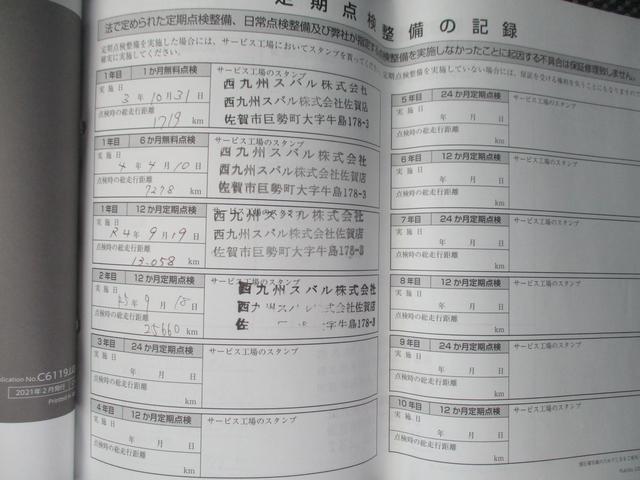 定期点検整備の記録
法で定められた定期点検整備、日常点検整備及び弊社が指定する点検整備を実施しなかったことに起因する不具合は保証修理致しません。
定期点検整備を実施した場合には、サービス工場においてスタンプを
確実に実施してください。
定期点検整備を実施していない場合には、保証を受ける権利を失うことにもなりますので
1年目 1か月無料点検 サービス工場のスタンプ
実施日 3年10月31日
点検時の総走行距離
1719 km
西九州スバル株式会社
西九州スバル株式会社佐賀店
佐賀市巨勢町大字牛島178-3
1年目 6か月無料点検 サービス工場のスタンプ
実施日 4年4月10日
点検時の総走行距離
7278 km
西九州スバル株式会社
西九州スバル株式会社佐賀店
佐賀市巨勢町大字牛島178-3
1年目 12か月定期点検
実施日 R4年9月19日
点検時の総走行距離
13,058 km
西九州スバル株式会社
西九州スバル株式会社佐賀店
佐賀市巨勢町大字牛島178-3
2年目 12か月定期点検 サービス工場のスタンプ
実施日 R5年9月18日
点検時の総走行距離
25660 km
西九州スバル株式会社
西九州スバル株式会社佐賀店
佐 大字牛島178-3
3年目 24か月定期点検 サービス工場のスタンプ
実施日 年 月 日
点検時の総走行距離
km
4年目 12か月定期点検 サービス工場のスタンプ
実施日 年 月 日
点検時の総走行距離
km
5年目 24か月定期点検 サービス工場のスタンプ
実施日 年 月 日
点検時の総走行距離
km
6年目 12か月定期点検 サービス工場のスタンプ
実施日 年 月 日
点検時の総走行距離
km
7年目 24か月定期点検 サービス工場のスタンプ
実施日 年 月 日
点検時の総走行距離
km
8年目 12か月定期点検 サービス工場のスタンプ
実施日 年 月 日
点検時の総走行距離
km
9年目 24か月定期点検 サービス工場のスタンプ
実施日 年 月 日
点検時の総走行距離
km
10年目 12か月定期点検 サービス工場のスタンプ
実施日 年 月 日
点検時の総走行距離
km
blication No.C6119JJ
2021年2月発行
Printed in